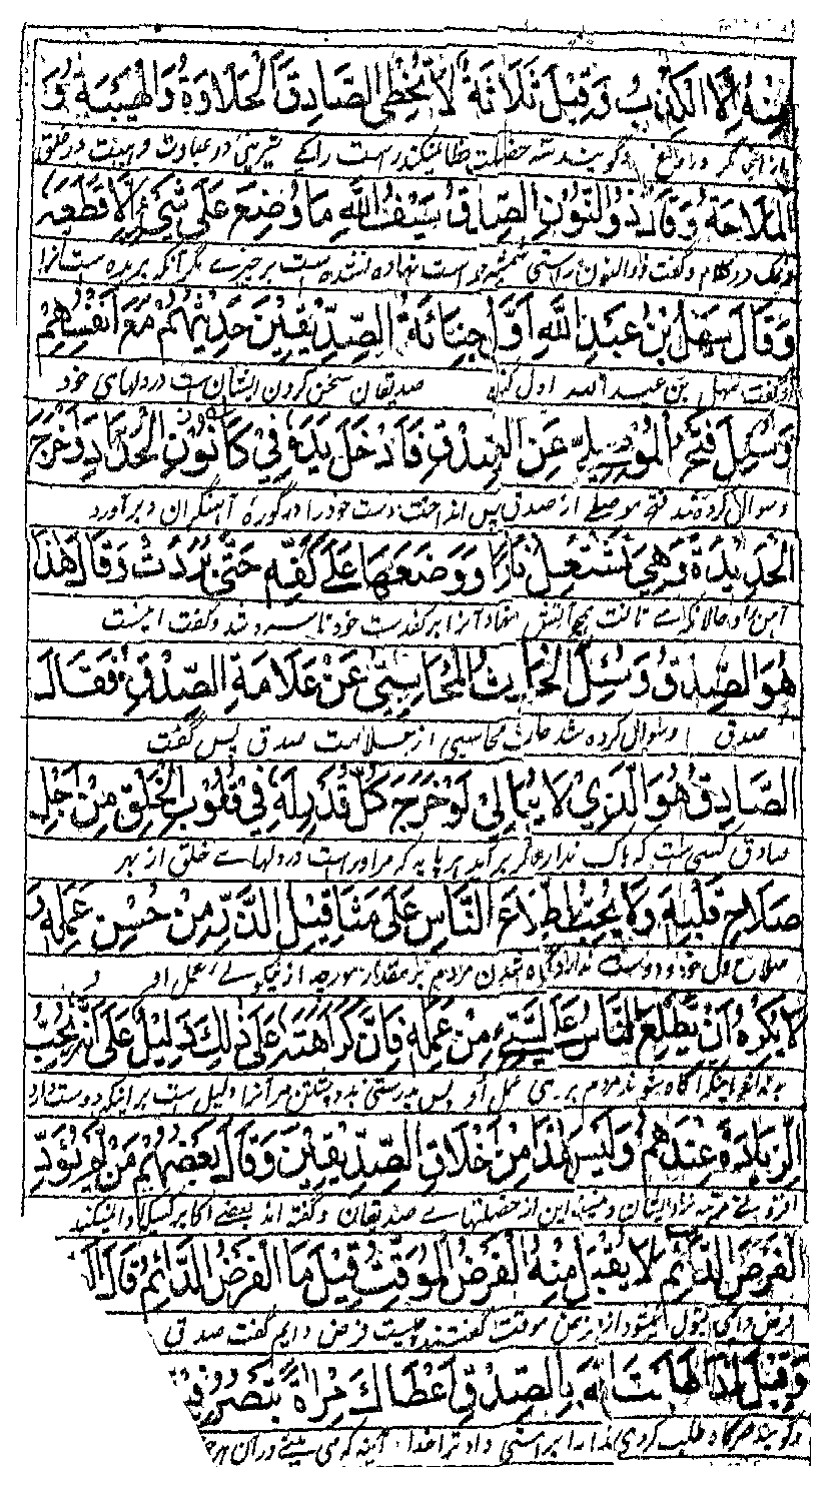 مِنْهُ اِلَّا الْكَذِبُ وَقِيْلَ ثَلَاثَةٌ لَا تُخْطِى الصَّادِقَ الْحَلَاوَةُ وَالْهَيْبَةُ وَ
گویند سه خصلت خطا نمیکند راست را یکی شیرینی در عبادت و هیبت در خلق
الْمَلَاحَةُ وَقَالَ ذُو النُّوْنِ الصِّدْقُ سَيْفُ اللّٰهِ مَا وُضِعَ عَلٰى شَيْئٍ اِلَّا قَطَعَهٗ
و نمک در کلام و گفت ذوالنون راستی شمشیر خدا است نهاده نشده است بر چیزے مگر آنکه بریده است آنرا
وَقَالَ سَهْلُ بْنُ عَبْدِ اللّٰهِ اَوَّلُ جِنَايَةِ الصِّدِّيْقِيْنَ حَدِيْثُهُمْ مَعَ اَنْفُسِهِمْ
و گفت سهل بن عبد الله اول گناه صدیقان سخن کردن ایشان است در دلهای خود
وَسُئِلَ فَتْحُ الْمُوْصِلِيُّ عَنِ الصِّدْقِ فَاَدْخَلَ يَدَهٗ فِيْ كَانُوْنِ الْحَدَّادِ وَاَخْرَجَ
و سوال کرده شد فتح موصلے از صدق پس انداخت دست خود را در کوره آهنگران و برآورد
الْحَدِيْدَةَ وَهِيَ تَشْتَعِلُ نَارًا وَوَضَعَهَا عَلٰى كَفِّهٖ حَتّٰى بَرُدَتْ وَقَالَ هٰذَا
آهن را و حالانکه آتش نهاد آنرا بر کف دست خود تا سرد شد و گفت اینست
هُوَ الصِّدْقُ وَسُئِلَ الْحَارِثُ الْمُحَاسِبِيُّ عَنْ عَلَامَةِ الصِّدْقِ فَقَالَ
صدق و سوال کرده شد حارث محاسبی از علامت صدق پس گفت
الصَّادِقُ هُوَ الَّذِيْ لَا يُبَالِيْ لَوْ خَرَجَ كُلُّ قَدْرٍ لَهٗ فِيْ قُلُوْبِ الْخَلْقِ مِنْ اَجْلِ
صادق کسی است که باک ندارد اگر برآید هر پایه که مر او را است در دلهاے خلق از بهر
صَلَاحِ قَلْبِهٖ وَلَا يُحِبُّ اطِّلَاعَ النَّاسِ عَلٰى مَثَاقِيْلِ الذَّرِّ مِنْ حُسْنِ عَمَلِهٖ وَ
صلاح دل خود و دوست ندارد آگاه شدن مردم بر مقدار مورچه از نیکوئے عمل او و
لَا يَكْرَهُ اَنْ يَطَّلِعَ النَّاسُ عَلَى السَّيِّئِ مِنْ عَمَلِهٖ فَاِنَّ كَرَاهَتَهٗ عَلٰى ذٰلِكَ دَلِيْلٌ عَلٰى اَنَّهٗ يُحِبُّ
بد نداند اینکه آگاه شوند مردم بر بدی عمل او پس بدرستی بد داشتن مر آنرا دلیل است بر اینکه دوست دارد
الزِّيَادَةَ عِنْدَهُمْ وَلَيْسَ هٰذَا مِنْ اَخْلَاقِ الصِّدِّيْقِيْنَ وَقَالَ بَعْضُهُمْ مَنْ لَمْ يُؤَدِّ
افزونے مرتبه نزد ایشان و نیست این از خصلتهاے صدیقان و گفته اند بعضے اکابر کسیکه ادا نمیکند
الْفَرْضَ الدَّائِمَ لَا يُقْبَلُ مِنْهُ الْفَرْضُ الْمُوَقَّتُ قِيْلَ مَا الْفَرْضُ الدَّائِمُ قَالَ
فرض دائمی قبول نمیشود از او فرض موقت گفتند چیست فرض دایم گفت صدق
وَقِيْلَ اِذَا طَلَبْتَ اللّٰهَ بِالصِّدْقِ اَعْطَاكَ مِرْاٰةً تُبْصِرُ فِيْهَا
و گویند هرگاه طلب کردی خدا را براستی داد ترا خدا آئینه که می بینی در آن هر